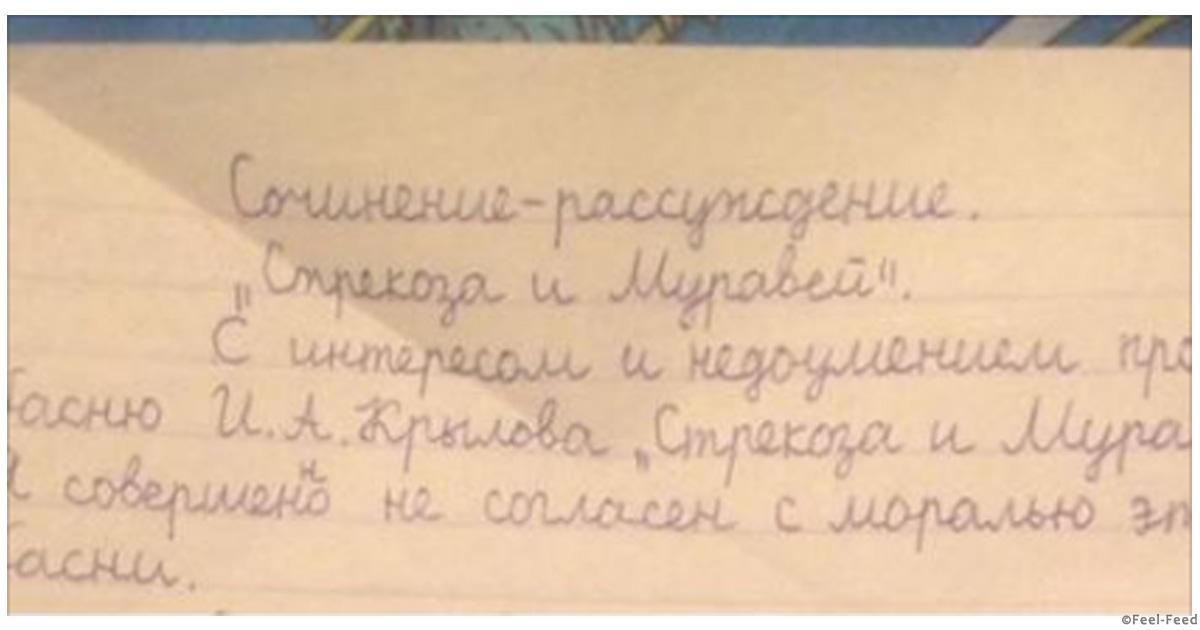 Сочинение-рассуждение.
„Стрекоза и Муравей".
С интересом и недоумением про
басню И.А.Крылова „Стрекоза и Мура
Я совершенно не согласен с моралью эт
басни.
©Feel-Feed